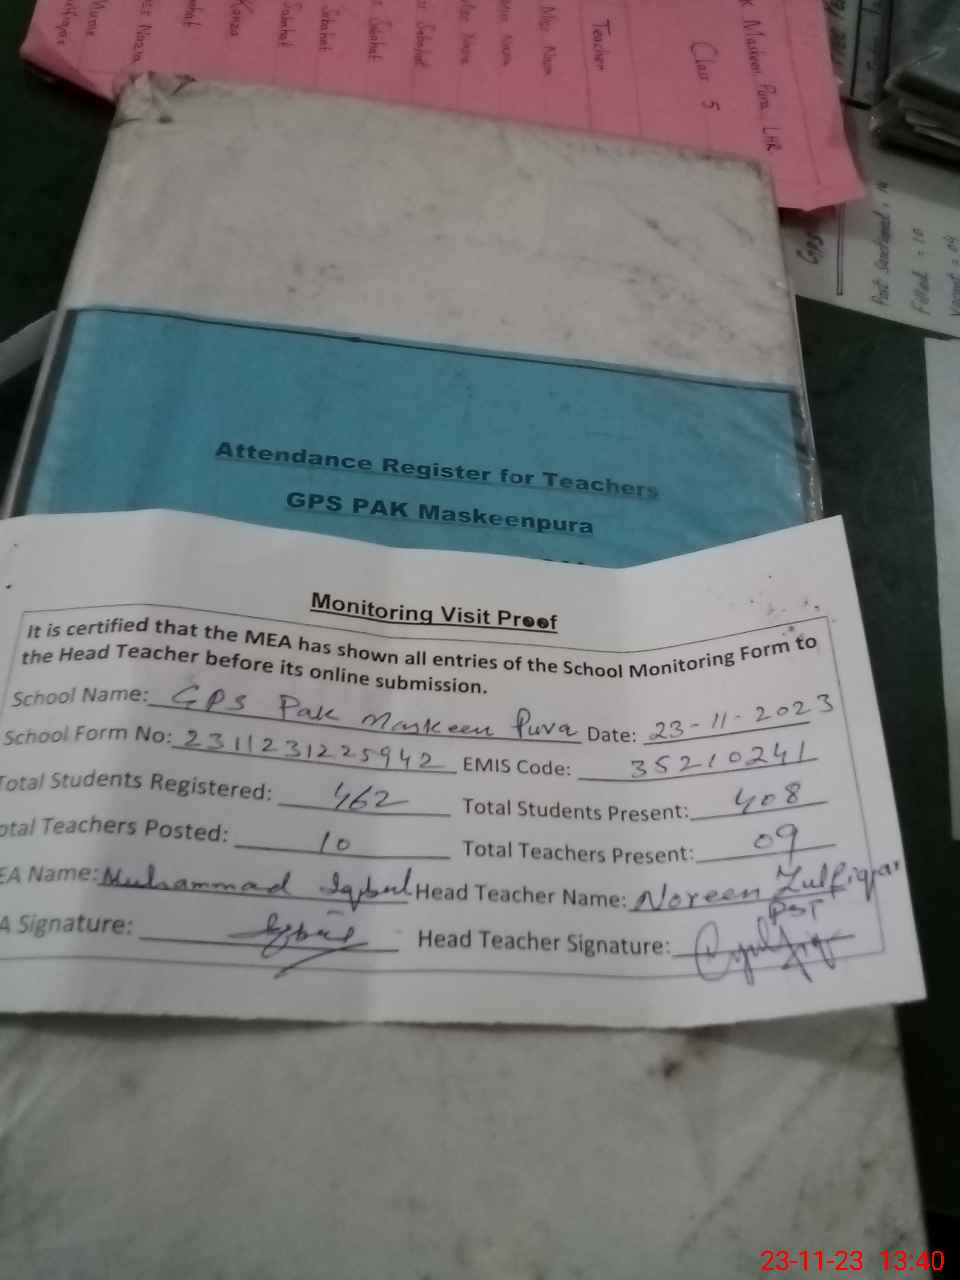 K Maskeen Pura LHR
Class 5
Teacher
Post Sanctioned = 10
Filled = 10
Vacant = 04
GPS
Attendance Register for Teachers
GPS PAK Maskeenpura
Monitoring Visit Proof
It is certified that the MEA has shown all entries of the School Monitoring Form to
the Head Teacher before its online submission.
School Name: GPS Pak Maskeen Pura Date: 23-11-2023
School Form No: 2311231225942 EMIS Code: 35210241
Total Students Registered: 462 Total Students Present: 408
otal Teachers Posted: 10 Total Teachers Present: 09
EA Name: Muhammad Iqbal Head Teacher Name: Noreen Zulfiqar
PST
A Signature: Iqbal Head Teacher Signature:
23-11-23 13:40